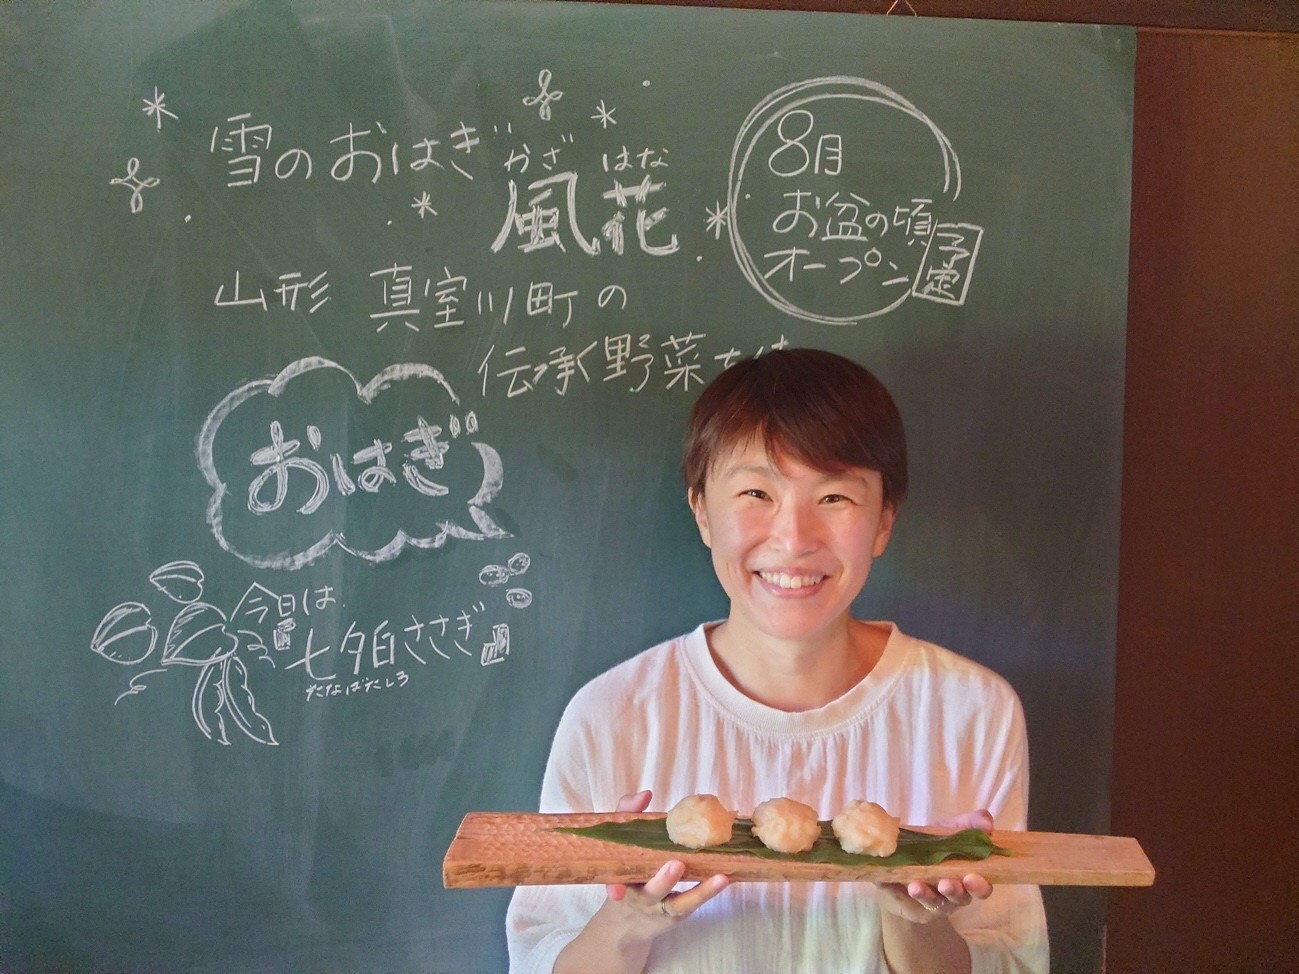 雪のおはぎ
かざ はな
風花
山形 真室川町の
伝承野菜
8月
お盆の頃
オープン
予定
おはぎ
今日は
七夕白ささぎ
たなばたしろ